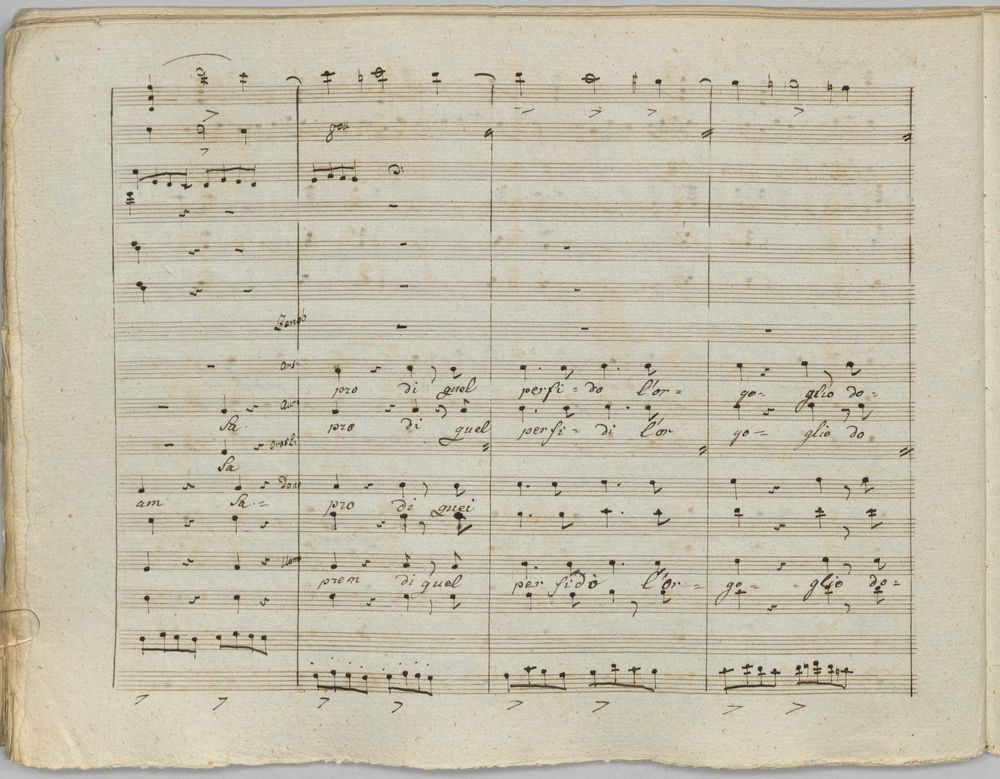 Zenob
pro di quel perfi = do l'or = go- glio do =
Sa. pro di quel perfi = di l'or go - glio do
Sa
am Sa. = pro di quei
prem di quel per fido l'or = go = - glio do =